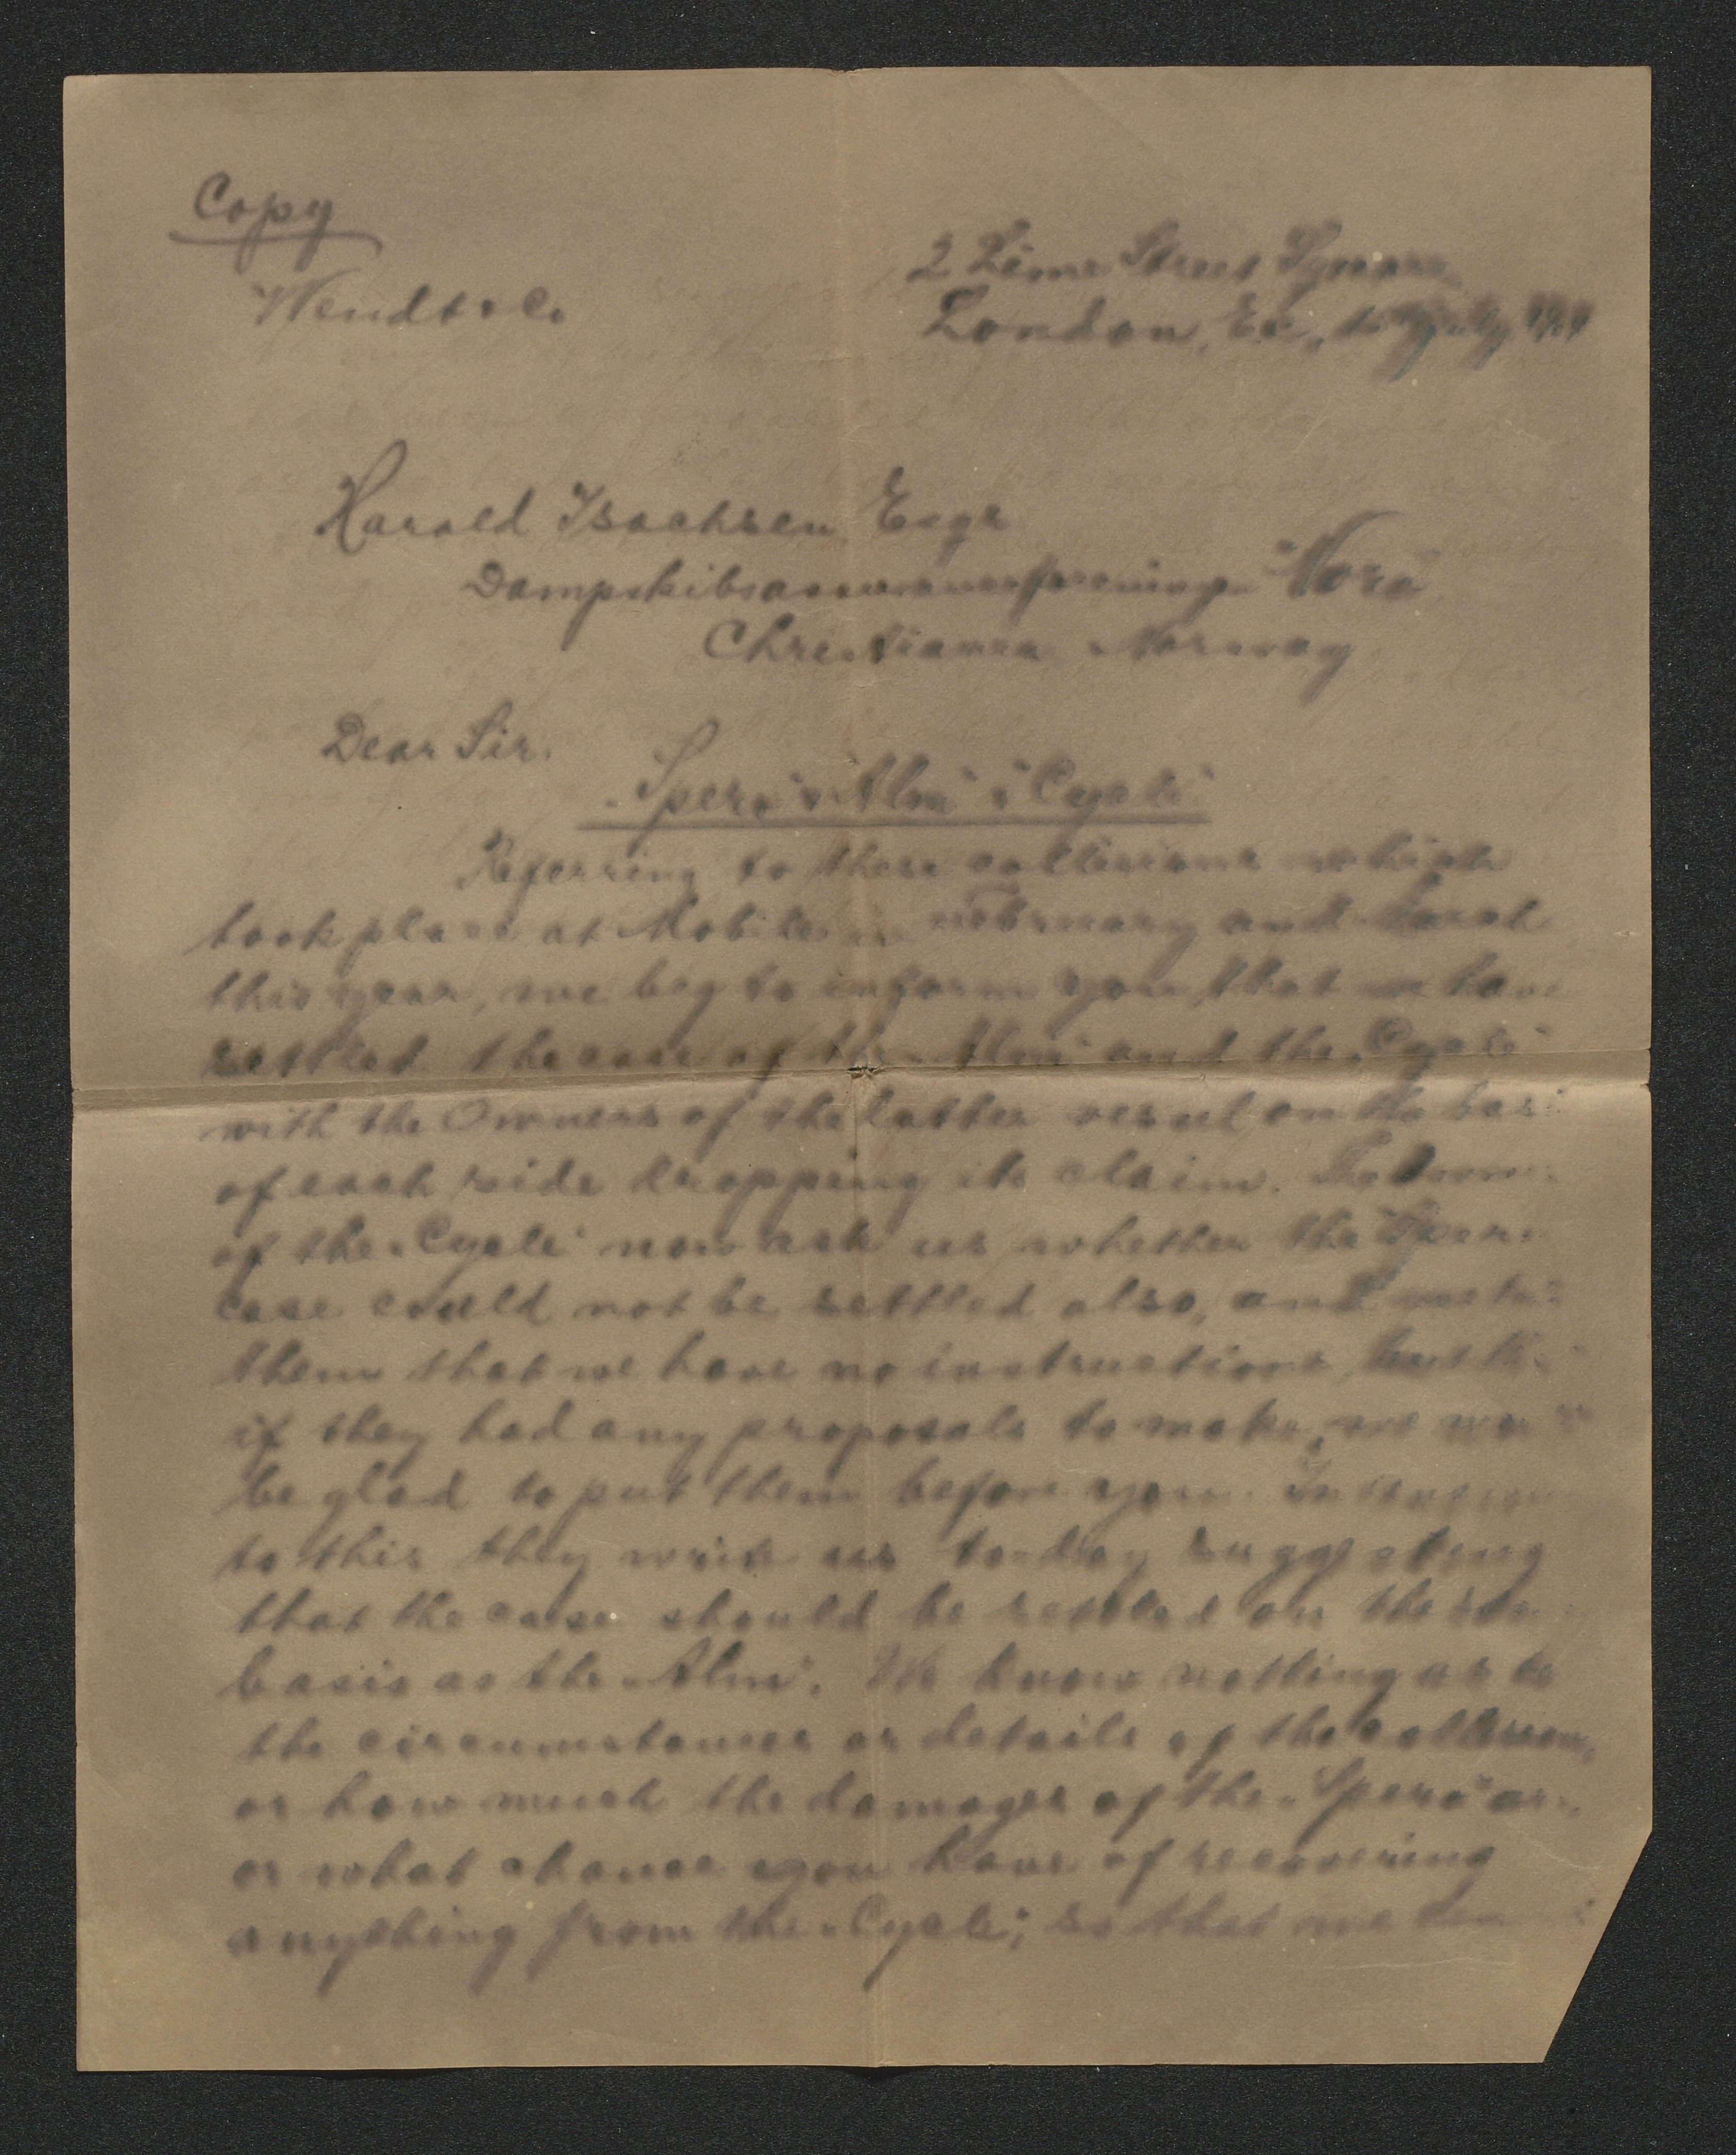 Copy
Wendt & Co
2 Lime Street Square
London, E.C., July
Harald Isachsen Esqr
Dampskibsassuranceforening "Vora"
Christiania Norway
Dear Sir.
"Spero" "Alm" & "Cycle"
Referring to these collisions which
took place at Mobile in February and March
this year, we beg to inform you that we have
settled the case of the "Alm" and the "Cycle"
with the Owners of the latter vessel on the basi
of each side dropping its claim. The Owners
of the "Cycle" now ask us whether the "Spero"
case could not be settled also, and we
them that we have no instructions, but
if they had any proposals to make, we
be glad to put them before you. In
to this they write us to-day suggesting
that the case should be settled on the
basis as the "Alm". We know nothing as to
the circumstances or details of the collision,
or how much the damages of the "Spero" are
or what chance you have of recovering
anything from the "Cycle", so that we